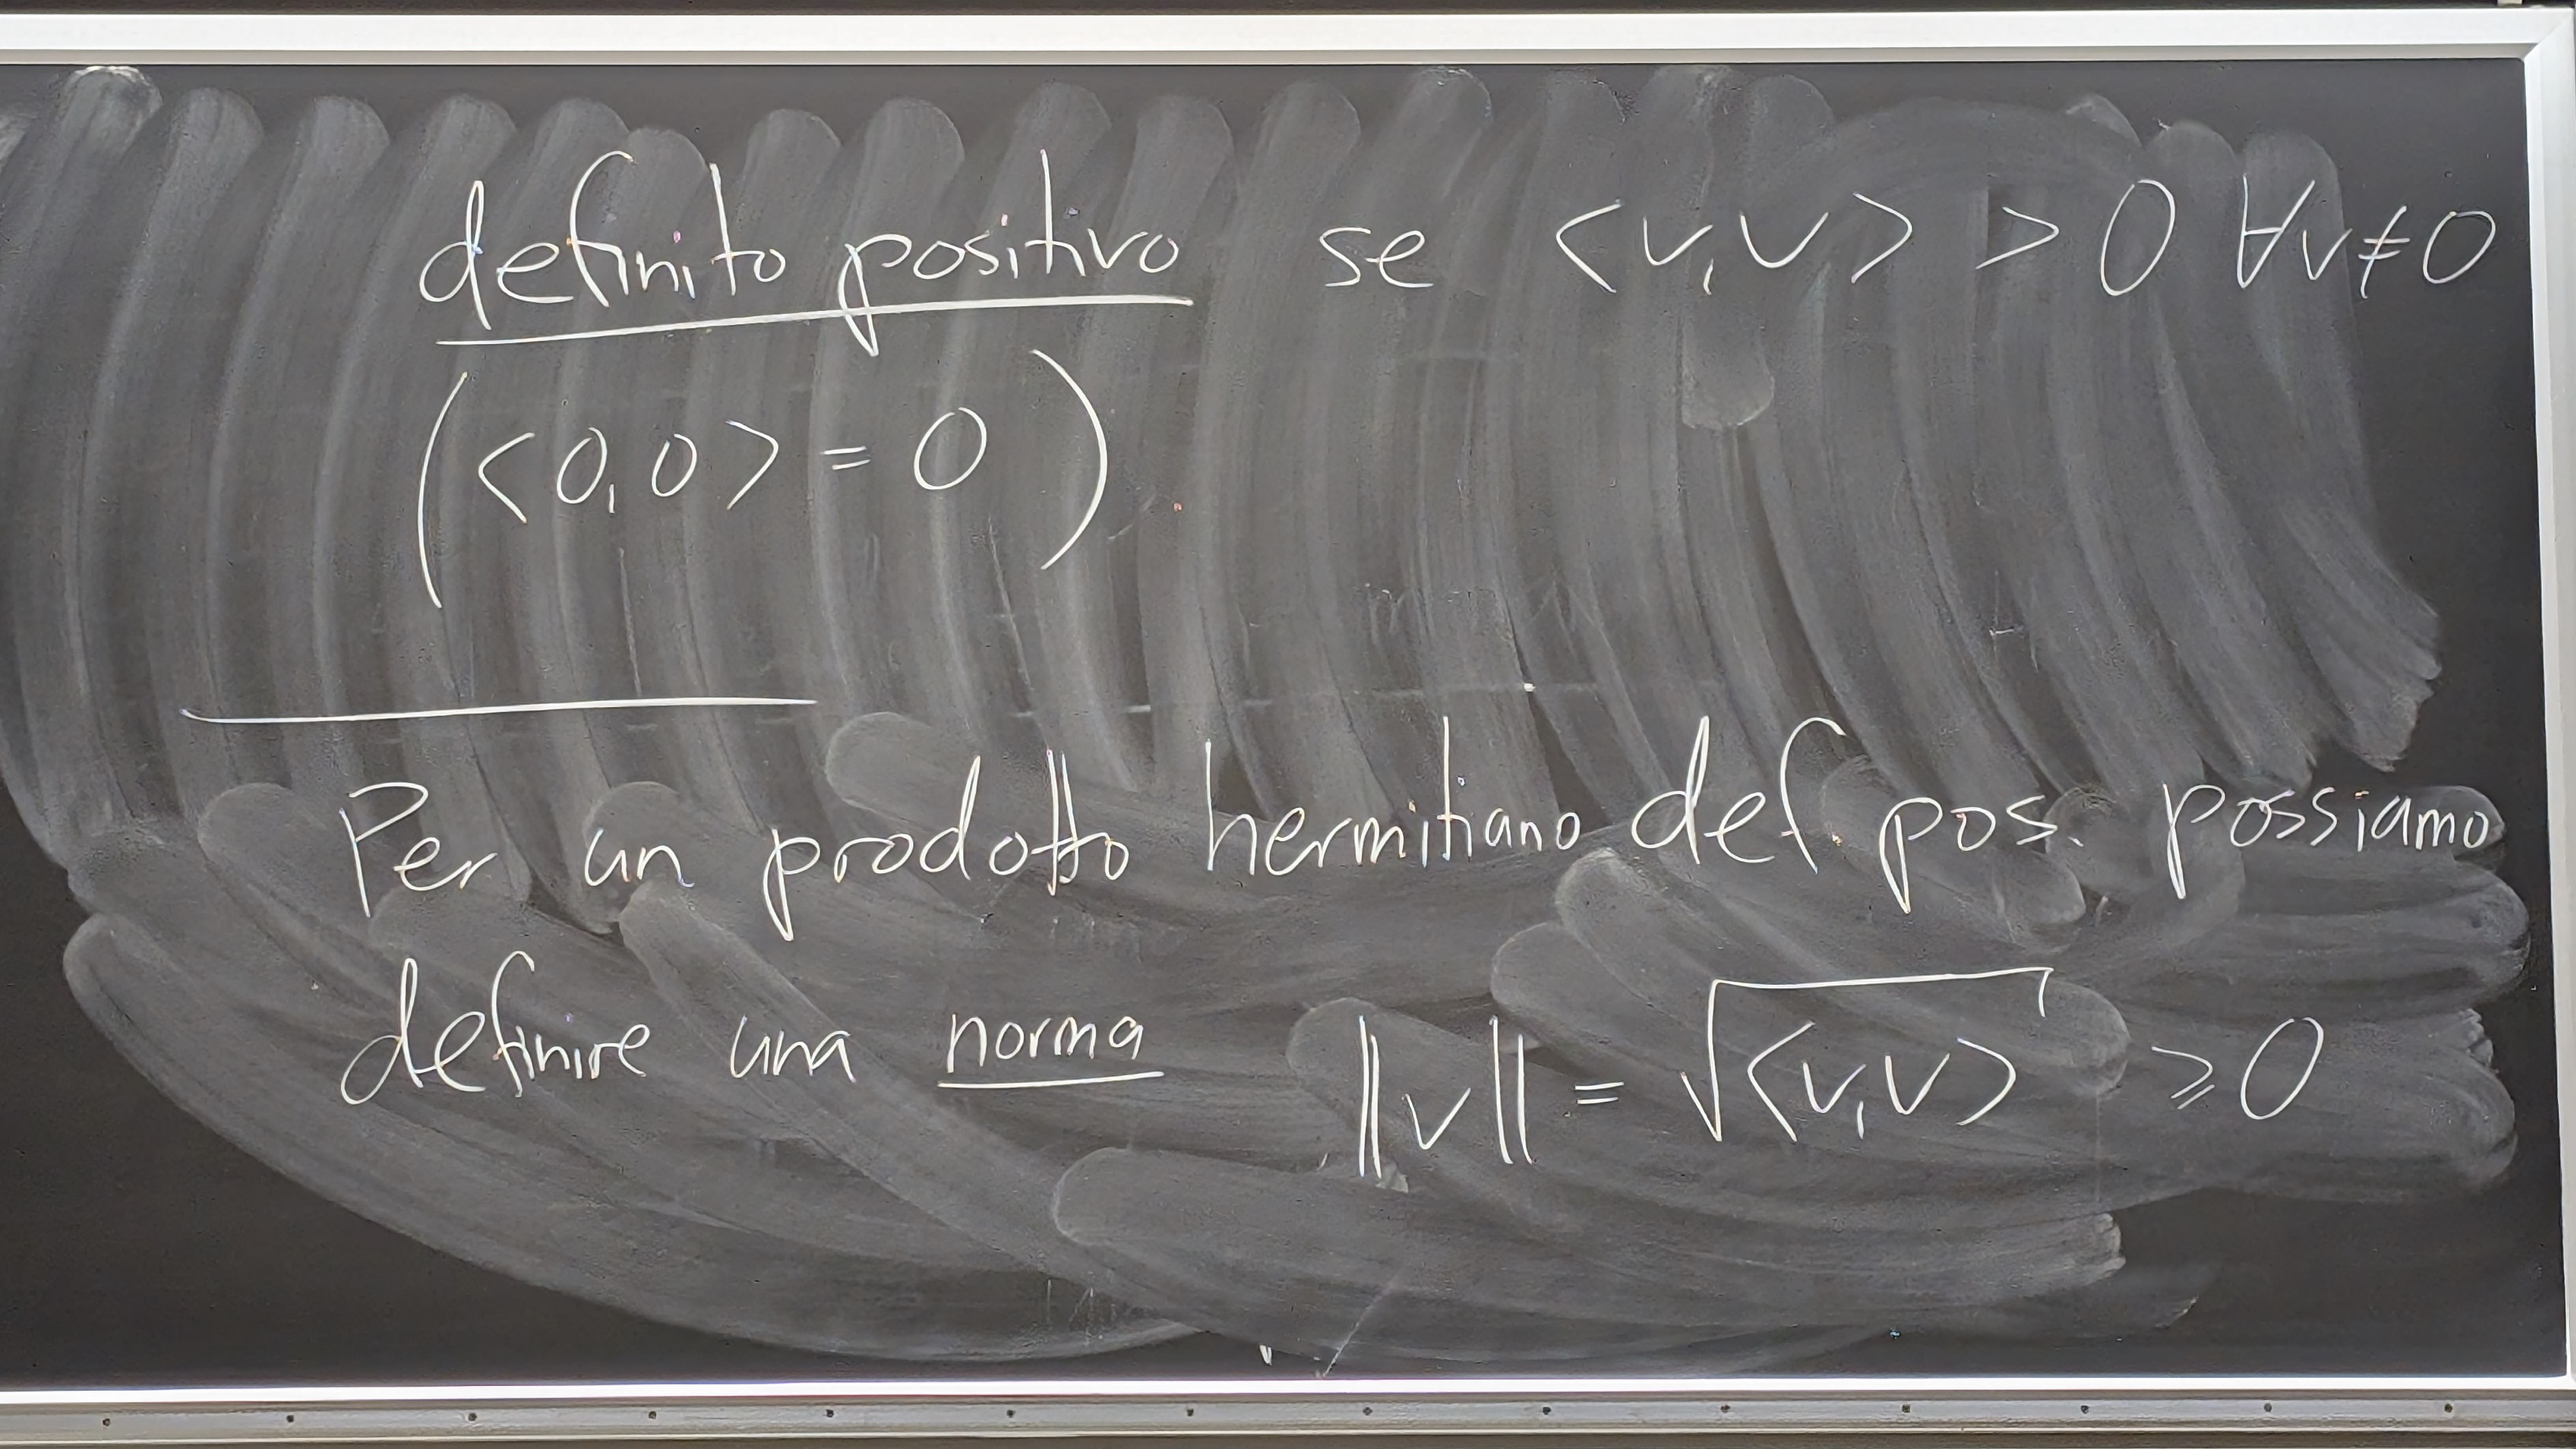 definito positivo se <v,v> > 0 ∀v≠0
(<0,0> = 0)
Per un prodotto hermitiano def. pos. possiamo
definire una norma ||v|| = √<v,v> ⩾ 0